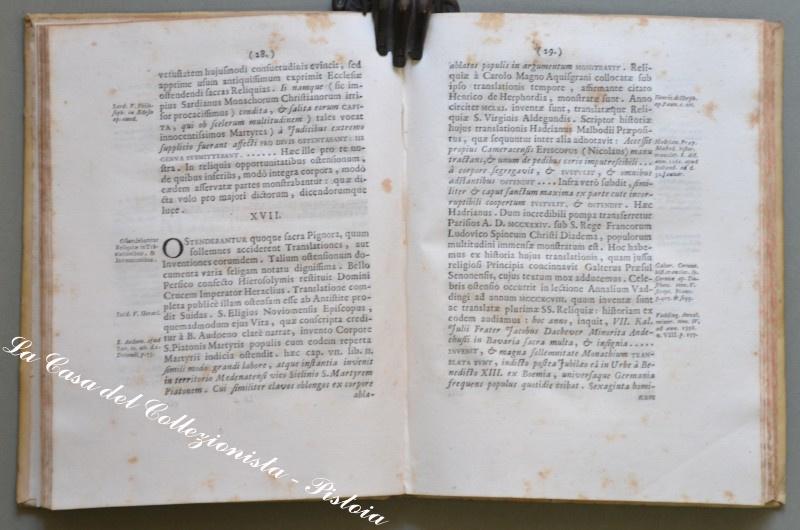 (28.)
vetustatem hujusmodi consuetudinis evincit, sed
apprime usum antiquissimum exprimit Ecclesiæ
ostendendi sacras Reliquias. Is namque (sic im-
pius Sardianus Monachorum Christianorum irri-
for procacissimus) condita, & salita eorum CAPI-
TA, qui ob scelerum multitudinem) tales vocat
innocentissimos Martyres) à Judicibus extremo
supplicio fuerant affecti PRO DIVIS OSTENTABANT: IIS
GENUA SUBMITTEBANT....... Hæc ille pro re no-
stra. In reliquis opportunitatibus ostensionum,
de quibus inferius, modò integra corpora, modo
cædem asservatæ partes monstrabantur: quæ di-
cta volo pro majori dictorum, dicendorumque
luce.
XVII.
OSTENDERANTUR quoque sacra Pignora, quum
sollemnes acciderent Translationes, aut
Inventiones eorumdem. Talium ostensionum do-
cumenta varia seligam notatu dignissima. Bello
Persico confecto Hierosolymis restituit Domini
Crucem Imperator Heraclius. Translatione com-
pleta publicè illam ostensam esse ab Antistite pro-
dit Suidas. S. Eligius Noviomensis Episcopus,
quemadmodum ejus Vita, quæ conscripta credi-
tur à B. Audoeno clarè narrat, invento Corpore
S. Piatonis Martyris populum cum eodem reperta
Martyrii indicia ostendit. hæc cap. VII. lib. II.
simili modo grandi labore, atque instantia invenit
in territorio Medenatensi vico Siclinio S. Martyrem
Piatonem. Cui similiter clavos oblongos ex corpore
abla-
Suid. V. Hieracl.
(29.)
ablatos populis in argumentum MONSTRAVIT. Reli-
quiæ à Carolo Magno Aquisgrani collocatæ sub
ipso translationis tempore, affirmante citato
Henrico de Hephordia, monstratæ sunt. Anno
circiter inventæ sunt, translatæque Reli-
quiæ S. Virginis Aldegundis. Scriptor historiæ
hujus translationis Hadrianus Malbodii Præposi-
tus, quæ sequuntur inter alia adnotavit: Accessit
propius Cameracensis EPISCOPUS (Nicolaus) manu
tractans, & unum de pedibus corio imputrescibili...
à corpore segregavit, & SUSTULIT, & omnibus
adstantibus OSTENDIT.... Infra verò subdit, simi-
liter & caput sanctum maxima ex parte cute incor-
ruptibili coopertum SUSTULIT, & OSTENDIT. Hæc
Hadrianus. Dum incredibili pompa transferretur
Parisios A. D. MCCXXXIV. sub S. Rege Francorum
Ludovico Spineum Christi Diadema, populorum
multitudini immensæ monstratum est. Hoc habe-
mus ex historia hujus translationis, quam jussu
religiosi Principis concinnavit Galterus Præsul
Senonensis, cujus textum mox adducemus. Cele-
bris ostensio occurrit in lectione Annalium Vad-
dingi ad annum quum inventæ sunt
ac translatæ plurimæ SS. Reliquiæ: historiam ex
eodem audiamus: hoc anno, inquit, VII. Kal.
Julii Frater Jacobus Dachover Minorita Ande-
chusii in Bavaria sacra multa, & insignia.....
INVENIT, & magna sollemnitate Monachium TRAN-
SLATA SUNT, indicto postea Jubilæo eà in Urbe à Be-
nedicto XIII. ex Boemia, universaque Germania
frequens populus quotidie exibat. Sexaginta homi-
num
La Casa del Collezionista - Pistoia